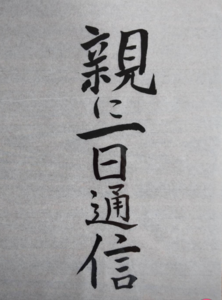 親に一日通信